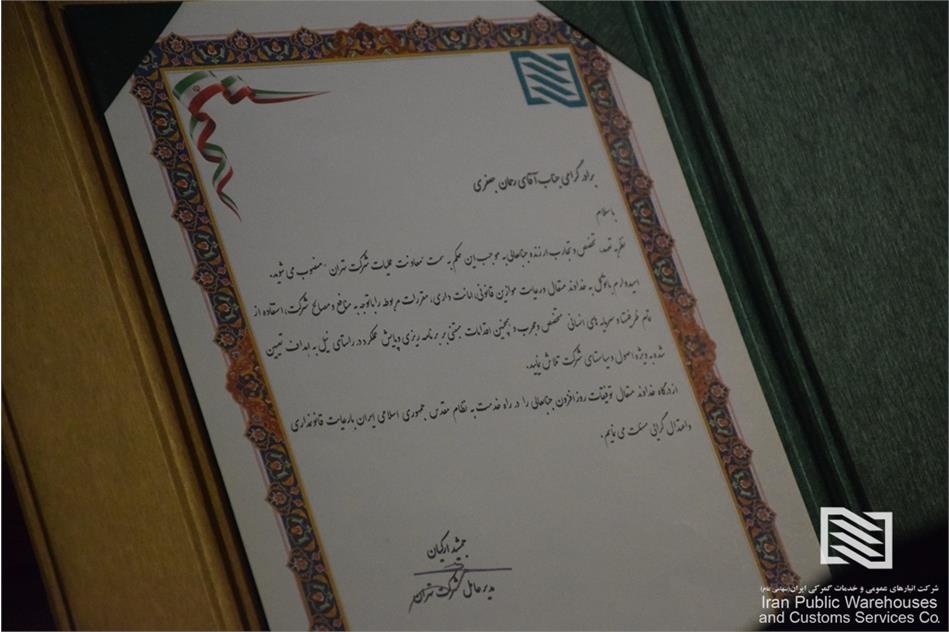 برادر گرامی جناب آقای رحمان جعفری
با سلام
نظر به تعهد، تخصص و تجارب ارزنده جنابعالی به موجب این حکم به سمت معاونت عملیات شرکت تهران - منصوب می شوید.
امیدوارم با توکل به خداوند متعال در رعایت موازین قانونی، امانت داری، مقررات مربوط را با توجه به منافع و مصالح شرکت، استفاده از
تمام ظرفیتها و سرمایه های انسانی متخصص و مجرب و همچنین اقدامات مبتنی بر برنامه ریزی و پایش عملکرد در راستای نیل به اهداف تعیین
شده به ویژه اصول و سیاستهای شرکت تلاش نمایید.
از درگاه خداوند متعال توفیقات روزافزون جنابعالی را در راه خدمت به نظام مقدس جمهوری اسلامی ایران با رعایت قانونمداری
و اعتدال گرایی مسئلت می نمایم.
جمشید ارکیان
مدیرعامل شرکت تهران
شرکت انبارهای عمومی و خدمات گمرکی ایران(سهامی عام)
Iran Public Warehouses
and Customs Services Co.